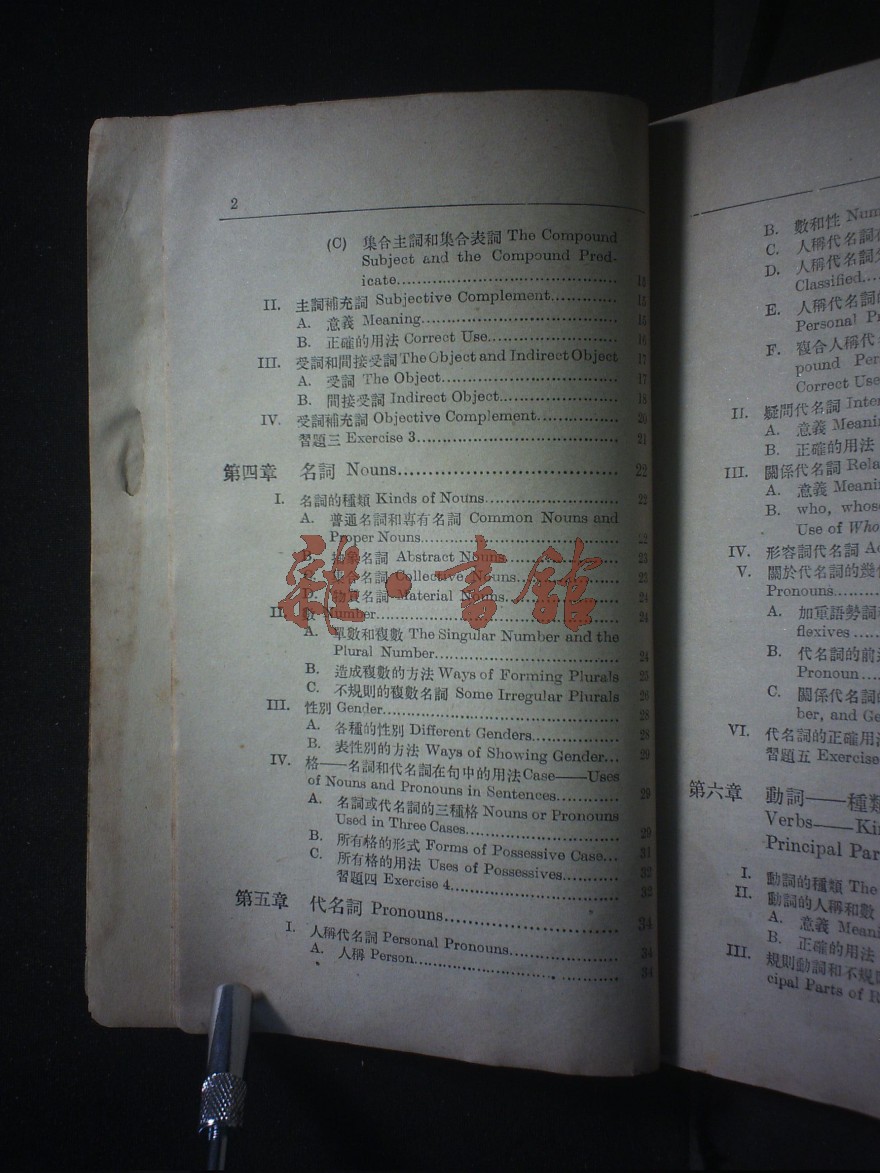 2
(C) 集合主詞和集合表詞 The Compound
Subject and the Compound Pred-
icate
II. 主詞補充詞 Subjective Complement 15
A. 意義 Meaning 15
B. 正確的用法 Correct Use 16
III. 受詞和間接受詞 The Object and Indirect Object 17
A. 受詞 The Object 17
B. 間接受詞 Indirect Object 18
IV. 受詞補充詞 Objective Complement 20
習題三 Exercise 3 21
第四章 名詞 Nouns 22
I. 名詞的種類 Kinds of Nouns 22
A. 普通名詞和專有名詞 Common Nouns and
Proper Nouns 22
B. 名詞 Abstract Nouns 23
C. 名詞 Collective Nouns 23
D. 物質名詞 Material Nouns 24
II. 數 Number 24
A. 單數和複數 The Singular Number and the
Plural Number 24
B. 造成複數的方法 Ways of Forming Plurals 25
C. 不規則的複數名詞 Some Irregular Plurals 26
III. 性別 Gender 28
A. 各種的性別 Different Genders 28
B. 表性別的方法 Ways of Showing Gender 29
IV. 格——名詞和代名詞在句中的用法 Case——Uses
of Nouns and Pronouns in Sentences 29
A. 名詞或代名詞的三種格 Nouns or Pronouns
Used in Three Cases 29
B. 所有格的形式 Forms of Possessive Case 31
C. 所有格的用法 Uses of Possessives 32
習題四 Exercise 4 32
第五章 代名詞 Pronouns 34
I. 人稱代名詞 Personal Pronouns 34
A. 人稱 Person 34
雜·書館
B. 數和性 Num
C. 人稱代名詞
D. 人稱代名詞
Classified
E. 人稱代名詞
Personal P
F. 複合人稱代
pound Per
Correct Use
II. 疑問代名詞 Inter
A. 意義 Meani
B. 正確的用法
III. 關係代名詞 Rela
A. 意義 Meani
B. who, whose
Use of Who
IV. 形容詞代名詞 A
V. 關於代名詞的幾
Pronouns
A. 加重語勢詞
flexives
B. 代名詞的前
Pronoun
C. 關係代名詞的
ber, and Ge
VI. 代名詞的正確用
習題五 Exercise
第六章 動詞——種類
Verbs——Ki
Principal Par
I. 動詞的種類 The
II. 動詞的人稱和數
A. 意義 Meani
B. 正確的用法
III. 規則動詞和不規
cipal Parts of R